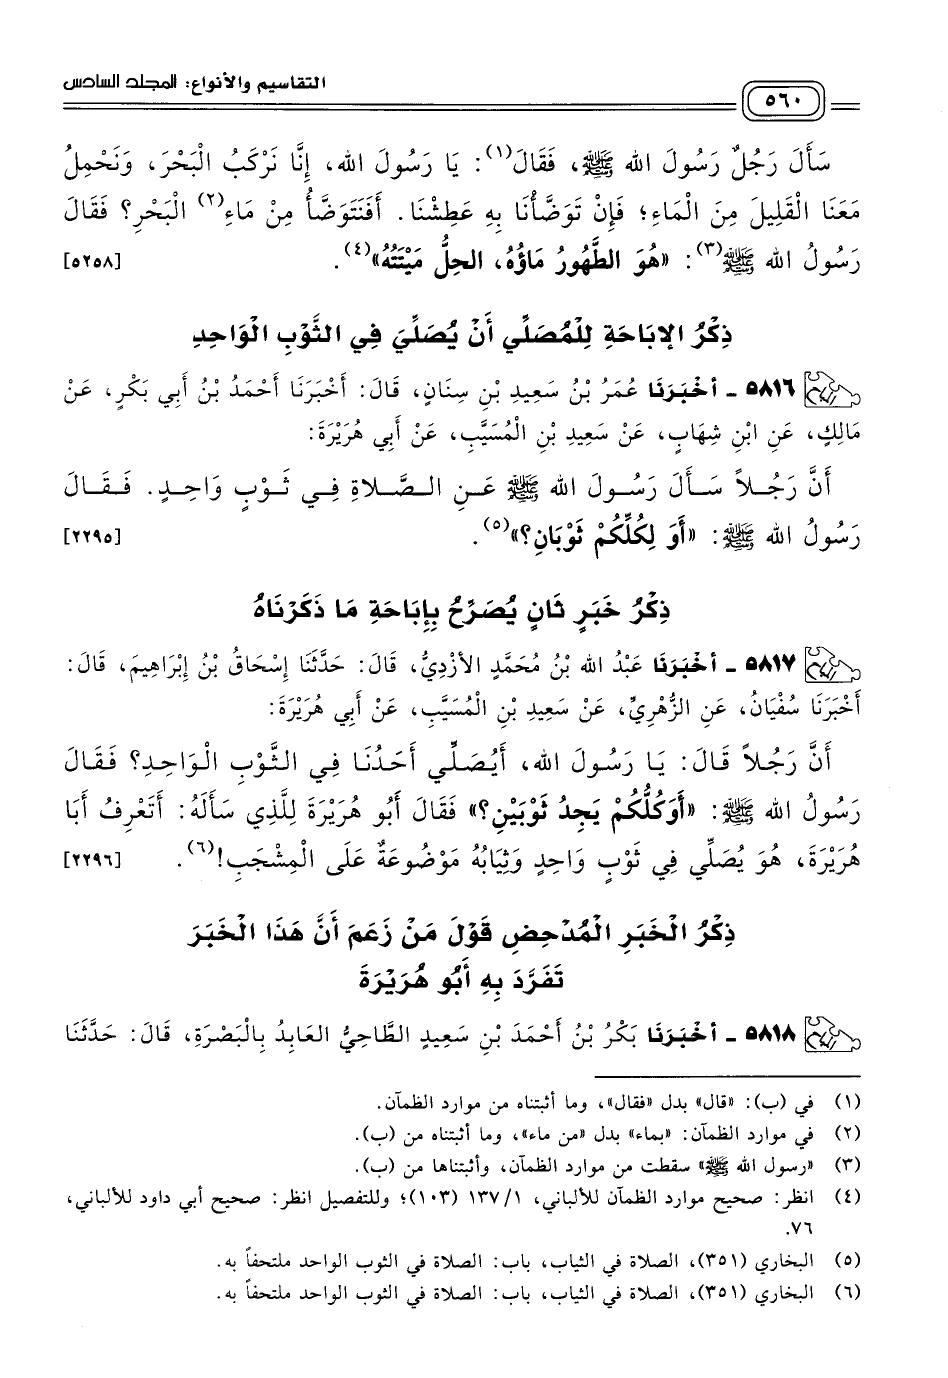 التقاسيم والأنواع: المجلد السادس
٥٦٠
سَأَلَ رَجُلٌ رَسُولَ الله ﷺ، فَقَالَ(١): يَا رَسُولَ الله، إِنَّا نَرْكَبُ الْبَحْرَ، وَنَحْمِلُ
مَعَنَا الْقَلِيلَ مِنَ الْمَاءِ؛ فَإِنْ تَوَضَّأْنَا بِهِ عَطِشْنَا. أَفَنَتَوَضَّأُ مِنْ مَاءِ(٢) الْبَحْرِ؟ فَقَالَ
رَسُولُ الله ﷺ(٣): «هُوَ الطَّهُورُ مَاؤُهُ، الحِلُّ مَيْتَتُهُ»(٤). [٥٢٥٨]
ذِكْرُ الإِبَاحَةِ لِلْمُصَلِّي أَنْ يُصَلِّيَ فِي الثَّوْبِ الْوَاحِدِ
٥٨١٦ ـ أخْبَرَنَا عُمَرُ بْنُ سَعِيدِ بْنِ سِنَانٍ، قَالَ: أَخْبَرَنَا أَحْمَدُ بْنُ أَبِي بَكْرٍ، عَنْ
مَالِكٍ، عَنِ ابْنِ شِهَابٍ، عَنْ سَعِيدِ بْنِ الْمُسَيَّبِ، عَنْ أَبِي هُرَيْرَةَ:
أَنَّ رَجُلاً سَأَلَ رَسُولَ الله ﷺ عَنِ الصَّلاةِ فِي ثَوْبٍ وَاحِدٍ. فَقَالَ
رَسُولُ الله ﷺ: «أَوَ لِكُلِّكُمْ ثَوْبَانِ؟»(٥). [٢٢٩٥]
ذِكْرُ خَبَرٍ ثَانٍ يُصَرِّحُ بِإِبَاحَةِ مَا ذَكَرْنَاهُ
٥٨١٧ ـ أخْبَرَنَا عَبْدُ الله بْنُ مُحَمَّدٍ الأزْدِيُّ، قَالَ: حَدَّثَنَا إِسْحَاقُ بْنُ إِبْرَاهِيمَ، قَالَ:
أَخْبَرَنَا سُفْيَانُ، عَنِ الزُّهْرِيِّ، عَنْ سَعِيدِ بْنِ الْمُسَيَّبِ، عَنْ أَبِي هُرَيْرَةَ:
أَنَّ رَجُلاً قَالَ: يَا رَسُولَ الله، أَيُصَلِّي أَحَدُنَا فِي الثَّوْبِ الْوَاحِدِ؟ فَقَالَ
رَسُولُ الله ﷺ: «أَوَكُلُّكُمْ يَجِدُ ثَوْبَيْنِ؟» فَقَالَ أَبُو هُرَيْرَةَ لِلَّذِي سَأَلَهُ: أَتَعْرِفُ أَبَا
هُرَيْرَةَ، هُوَ يُصَلِّي فِي ثَوْبٍ وَاحِدٍ وَثِيَابُهُ مَوْضُوعَةٌ عَلَى الْمِشْجَبِ!(٦). [٢٢٩٦]
ذِكْرُ الْخَبَرِ الْمُدْحِضِ قَوْلَ مَنْ زَعَمَ أَنَّ هَذَا الْخَبَرَ
تَفَرَّدَ بِهِ أَبُو هُرَيْرَةَ
٥٨١٨ ـ أخْبَرَنَا بَكْرُ بْنُ أَحْمَدَ بْنِ سَعِيدٍ الطَّاحِيُّ العَابِدُ بِالْبَصْرَةِ، قَالَ: حَدَّثَنَا
(١) في (ب): «قال» بدل «فقال»، وما أثبتناه من موارد الظمآن.
(٢) في موارد الظمآن: «بماء» بدل «من ماء»، وما أثبتناه من (ب).
(٣) «رسول الله ﷺ» سقطت من موارد الظمآن، وأثبتناها من (ب).
(٤) انظر: صحيح موارد الظمآن للألباني، ١٣٧/١ (١٠٣)؛ وللتفصيل انظر: صحيح أبي داود للألباني،
٧٦.
(٥) البخاري (٣٥١)، الصلاة في الثياب، باب: الصلاة في الثوب الواحد ملتحفاً به.
(٦) البخاري (٣٥١)، الصلاة في الثياب، باب: الصلاة في الثوب الواحد ملتحفاً به.